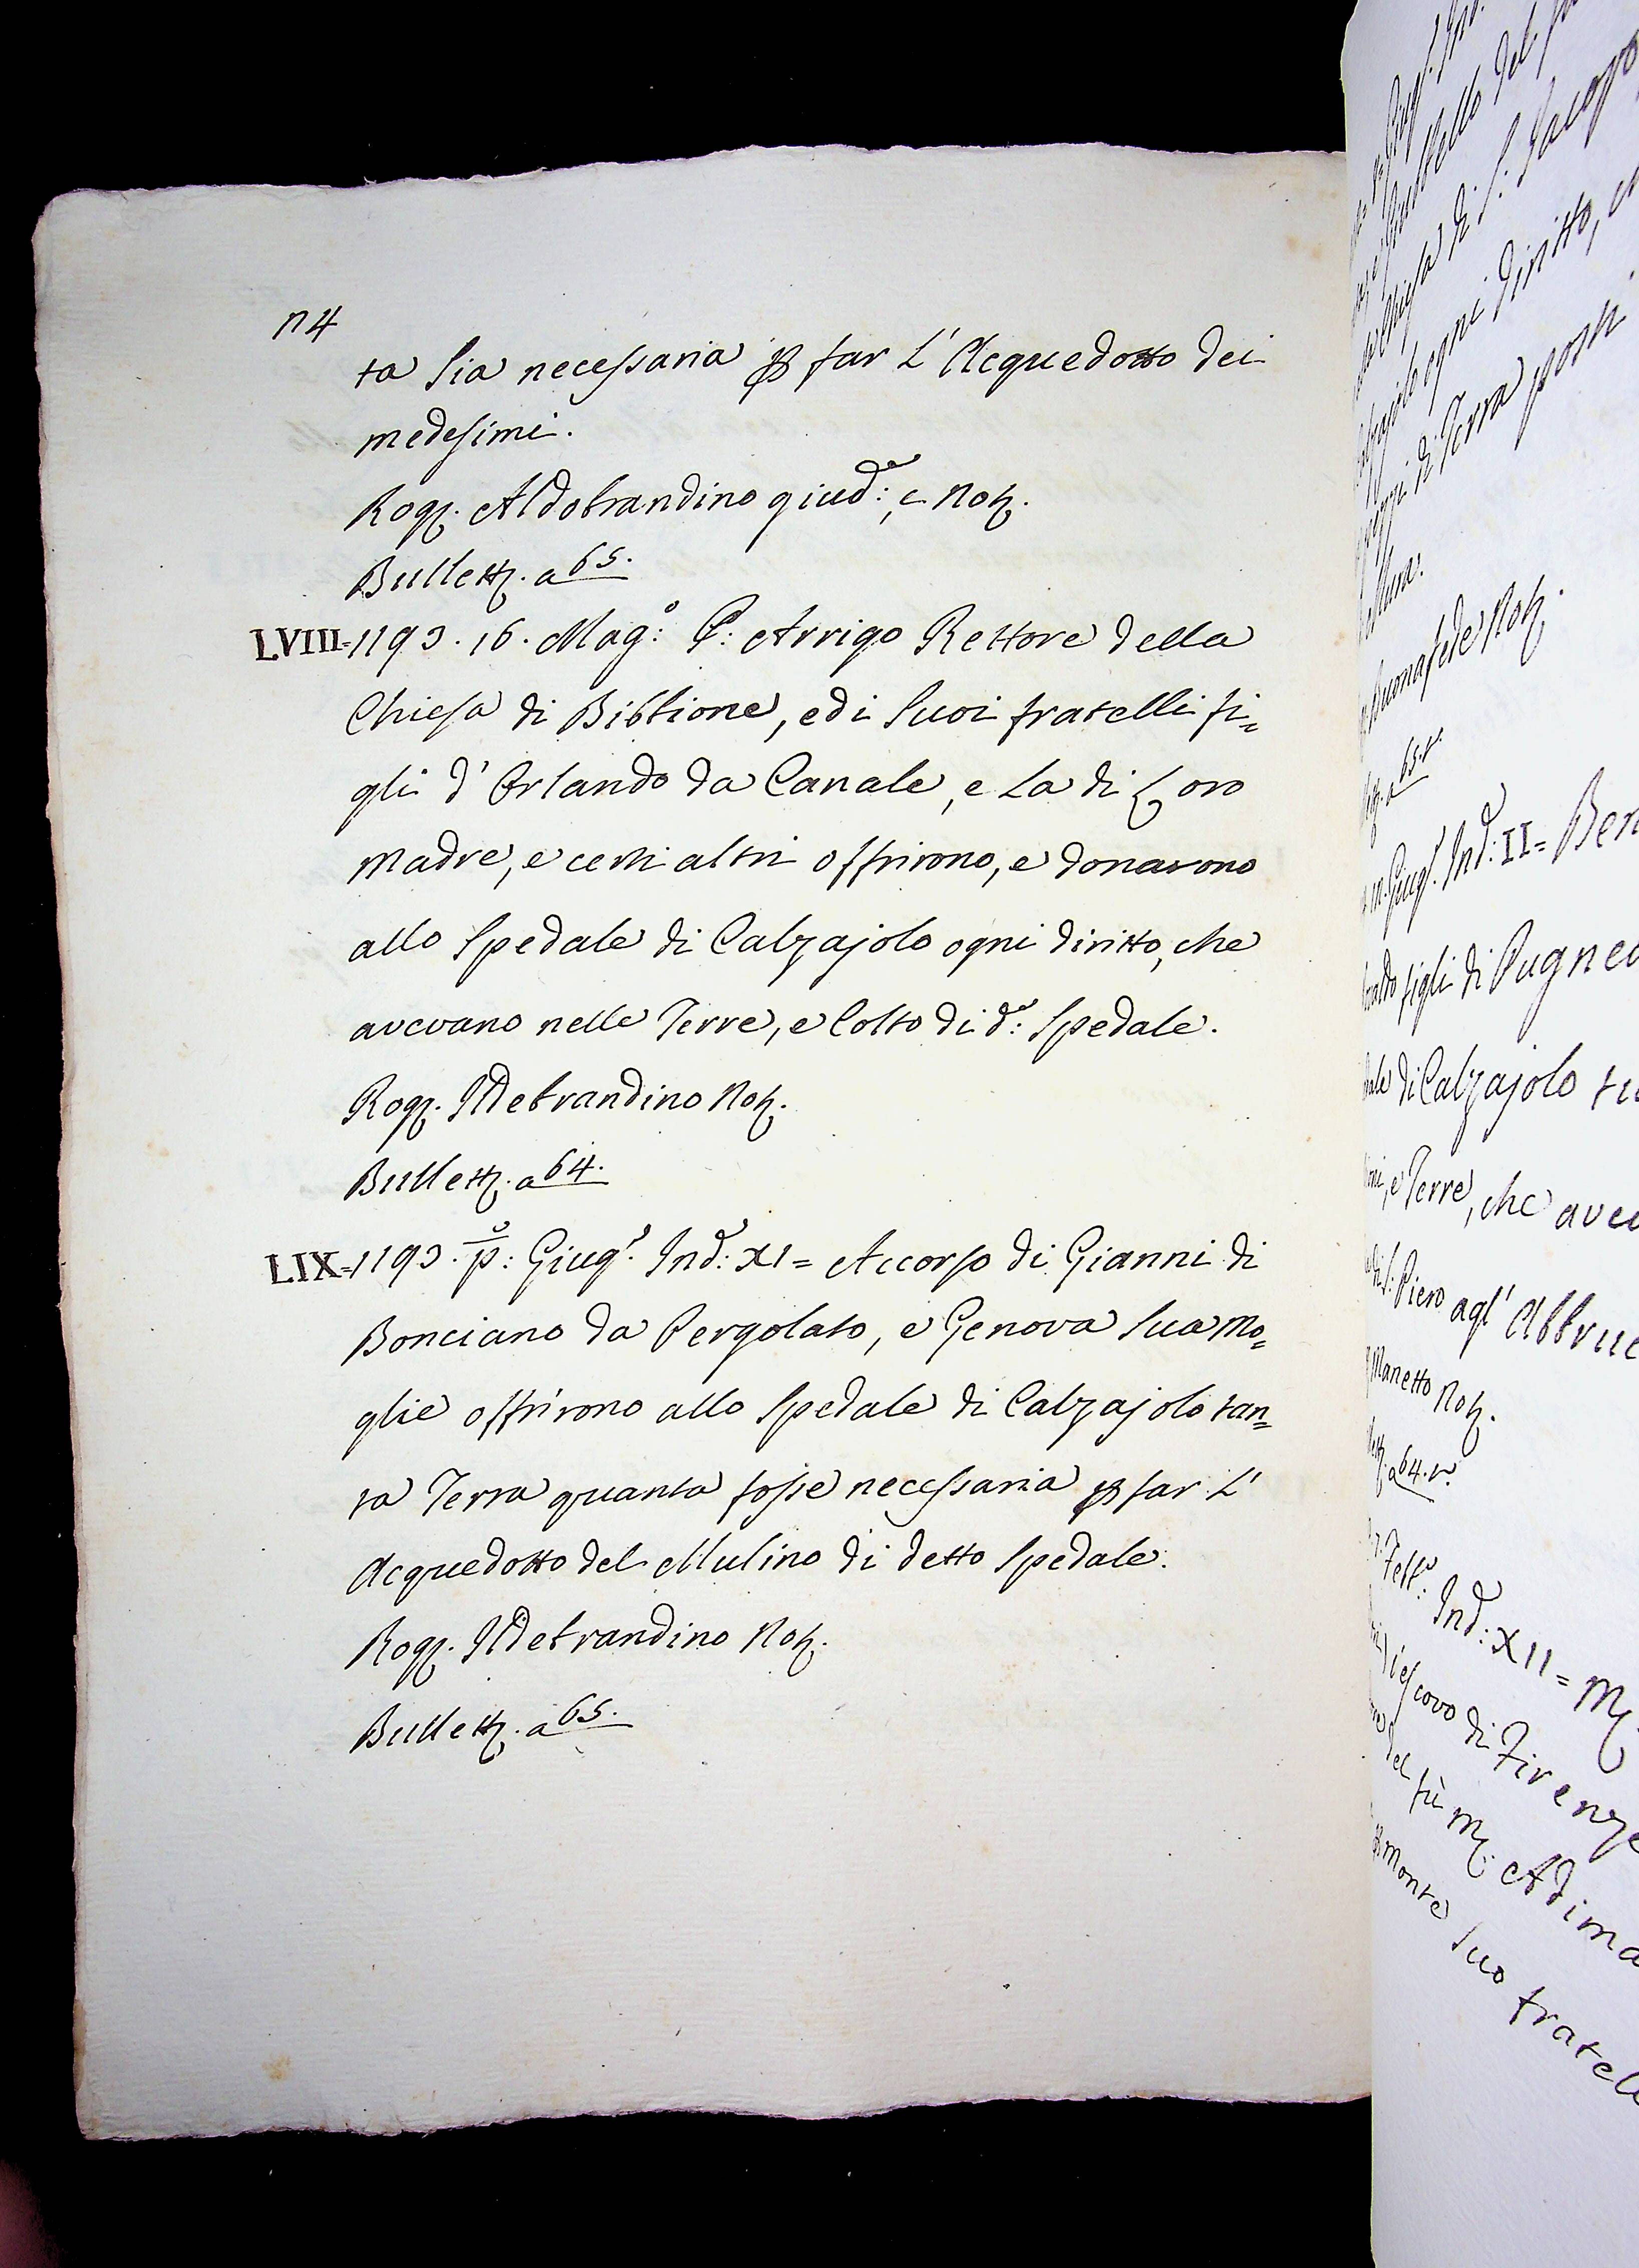 114
ta sia necessaria p far L' Acquedotto dei
medesimi.
Rogg. Aldobrandino giud:e, e Not.
Bullett. a 65.
LVIII=1193. 16. Mag:o P: Arrigo Rettore della
Chiesa di Bibbione, ed i suoi fratelli fi=
gli d' Orlando da Canale, e La di Loro
Madre, e certi altri offrirono, e donarono
allo Spedale di Calzajolo ogni diritto, che
avevano nelle Terre, e Colto di d:o Spedale.
Rog. Ildebrandino Not.
Bullett. a 64.
LIX=1193. p:o Giug.o Ind: XI= Accorso di Gianni di
Bonciano da Pergolato, e Genova sua Mo=
glie offrirono allo Spedale di Calzajolo tan=
ta Terra quanta fosse necessaria p far L'
Acquedotto del Mulino di detto Spedale.
Rog. Ildebrandino Not.
Bullett. a 65.
diritto,
di Terra posti
Buonafede Not.
65.t.
Giug. Ind: II= Ben
figli di Pugne
di Calzajolo tu
e Terre, che avev
Piero agl' Abbruc
Manetto Not.
a 64.t.
Febb:o Ind: XII= M
Vescovo di Firenze
del fù M: Adima
monte suo fratel